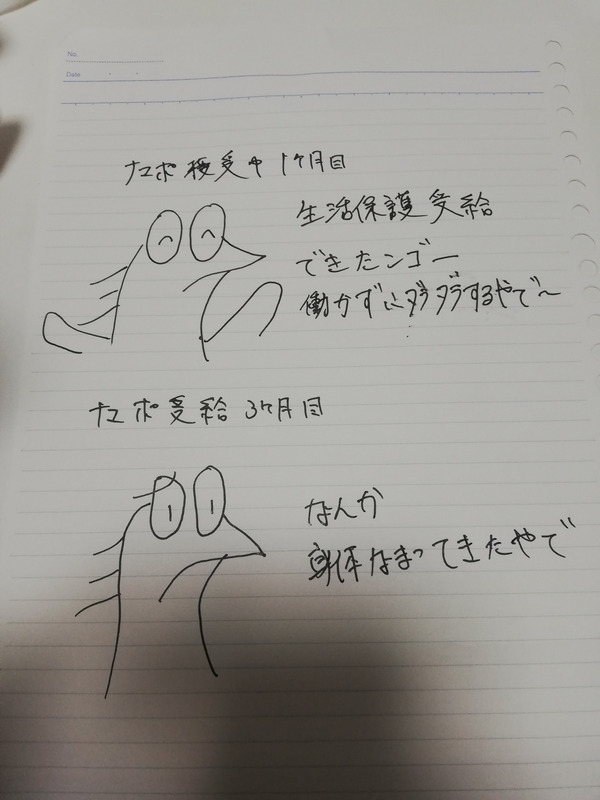 No.
Date
ナマポ授受中 1ヶ月目
生活保護受給
できたンゴー
働かずにダラダラするやで〜
ナマポ受給 3ヶ月目
なんか
身体なまってきたやで